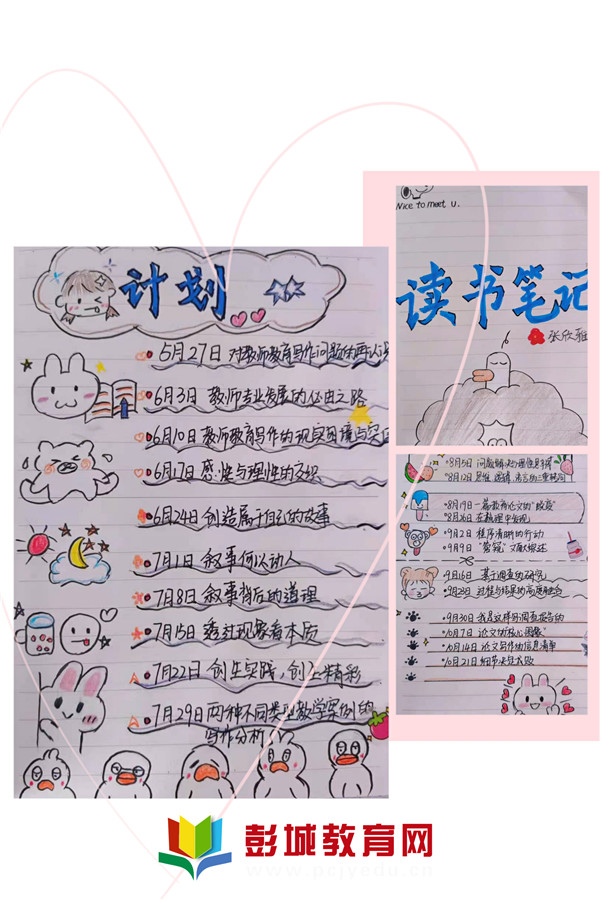 计划
5月27日 对教师教育写作问题的再认识
6月3日 教师专业发展的必由之路
6月10日 教师教育写作的现实困境与突围
6月17日 感性与理性的交织
6月24日 创造属于自己的故事
7月1日 叙事何以动人
7月8日 叙事背后的道理
7月15日 透过现象看本质
7月22日 创生实践，创生精彩
7月29日 两种不同类型教学案例的
写作分析
Nice to meet U.
读书笔记
张欣
8月5日 问题解决
8月12日 思维、逻辑、语言的三重
8月19日 一篇教育论文的
8月26日 在梳理中发现
9月2日 程序清晰的行动
9月9日 文献综述
9月16日 基于调查的研究
9月23日 过程与结果的高度融合
9月30日 我是这样写调查报告的
10月7日 论文的核心
10月14日 论文写作的信息清单
10月21日 细节决定成败
彭城教育网